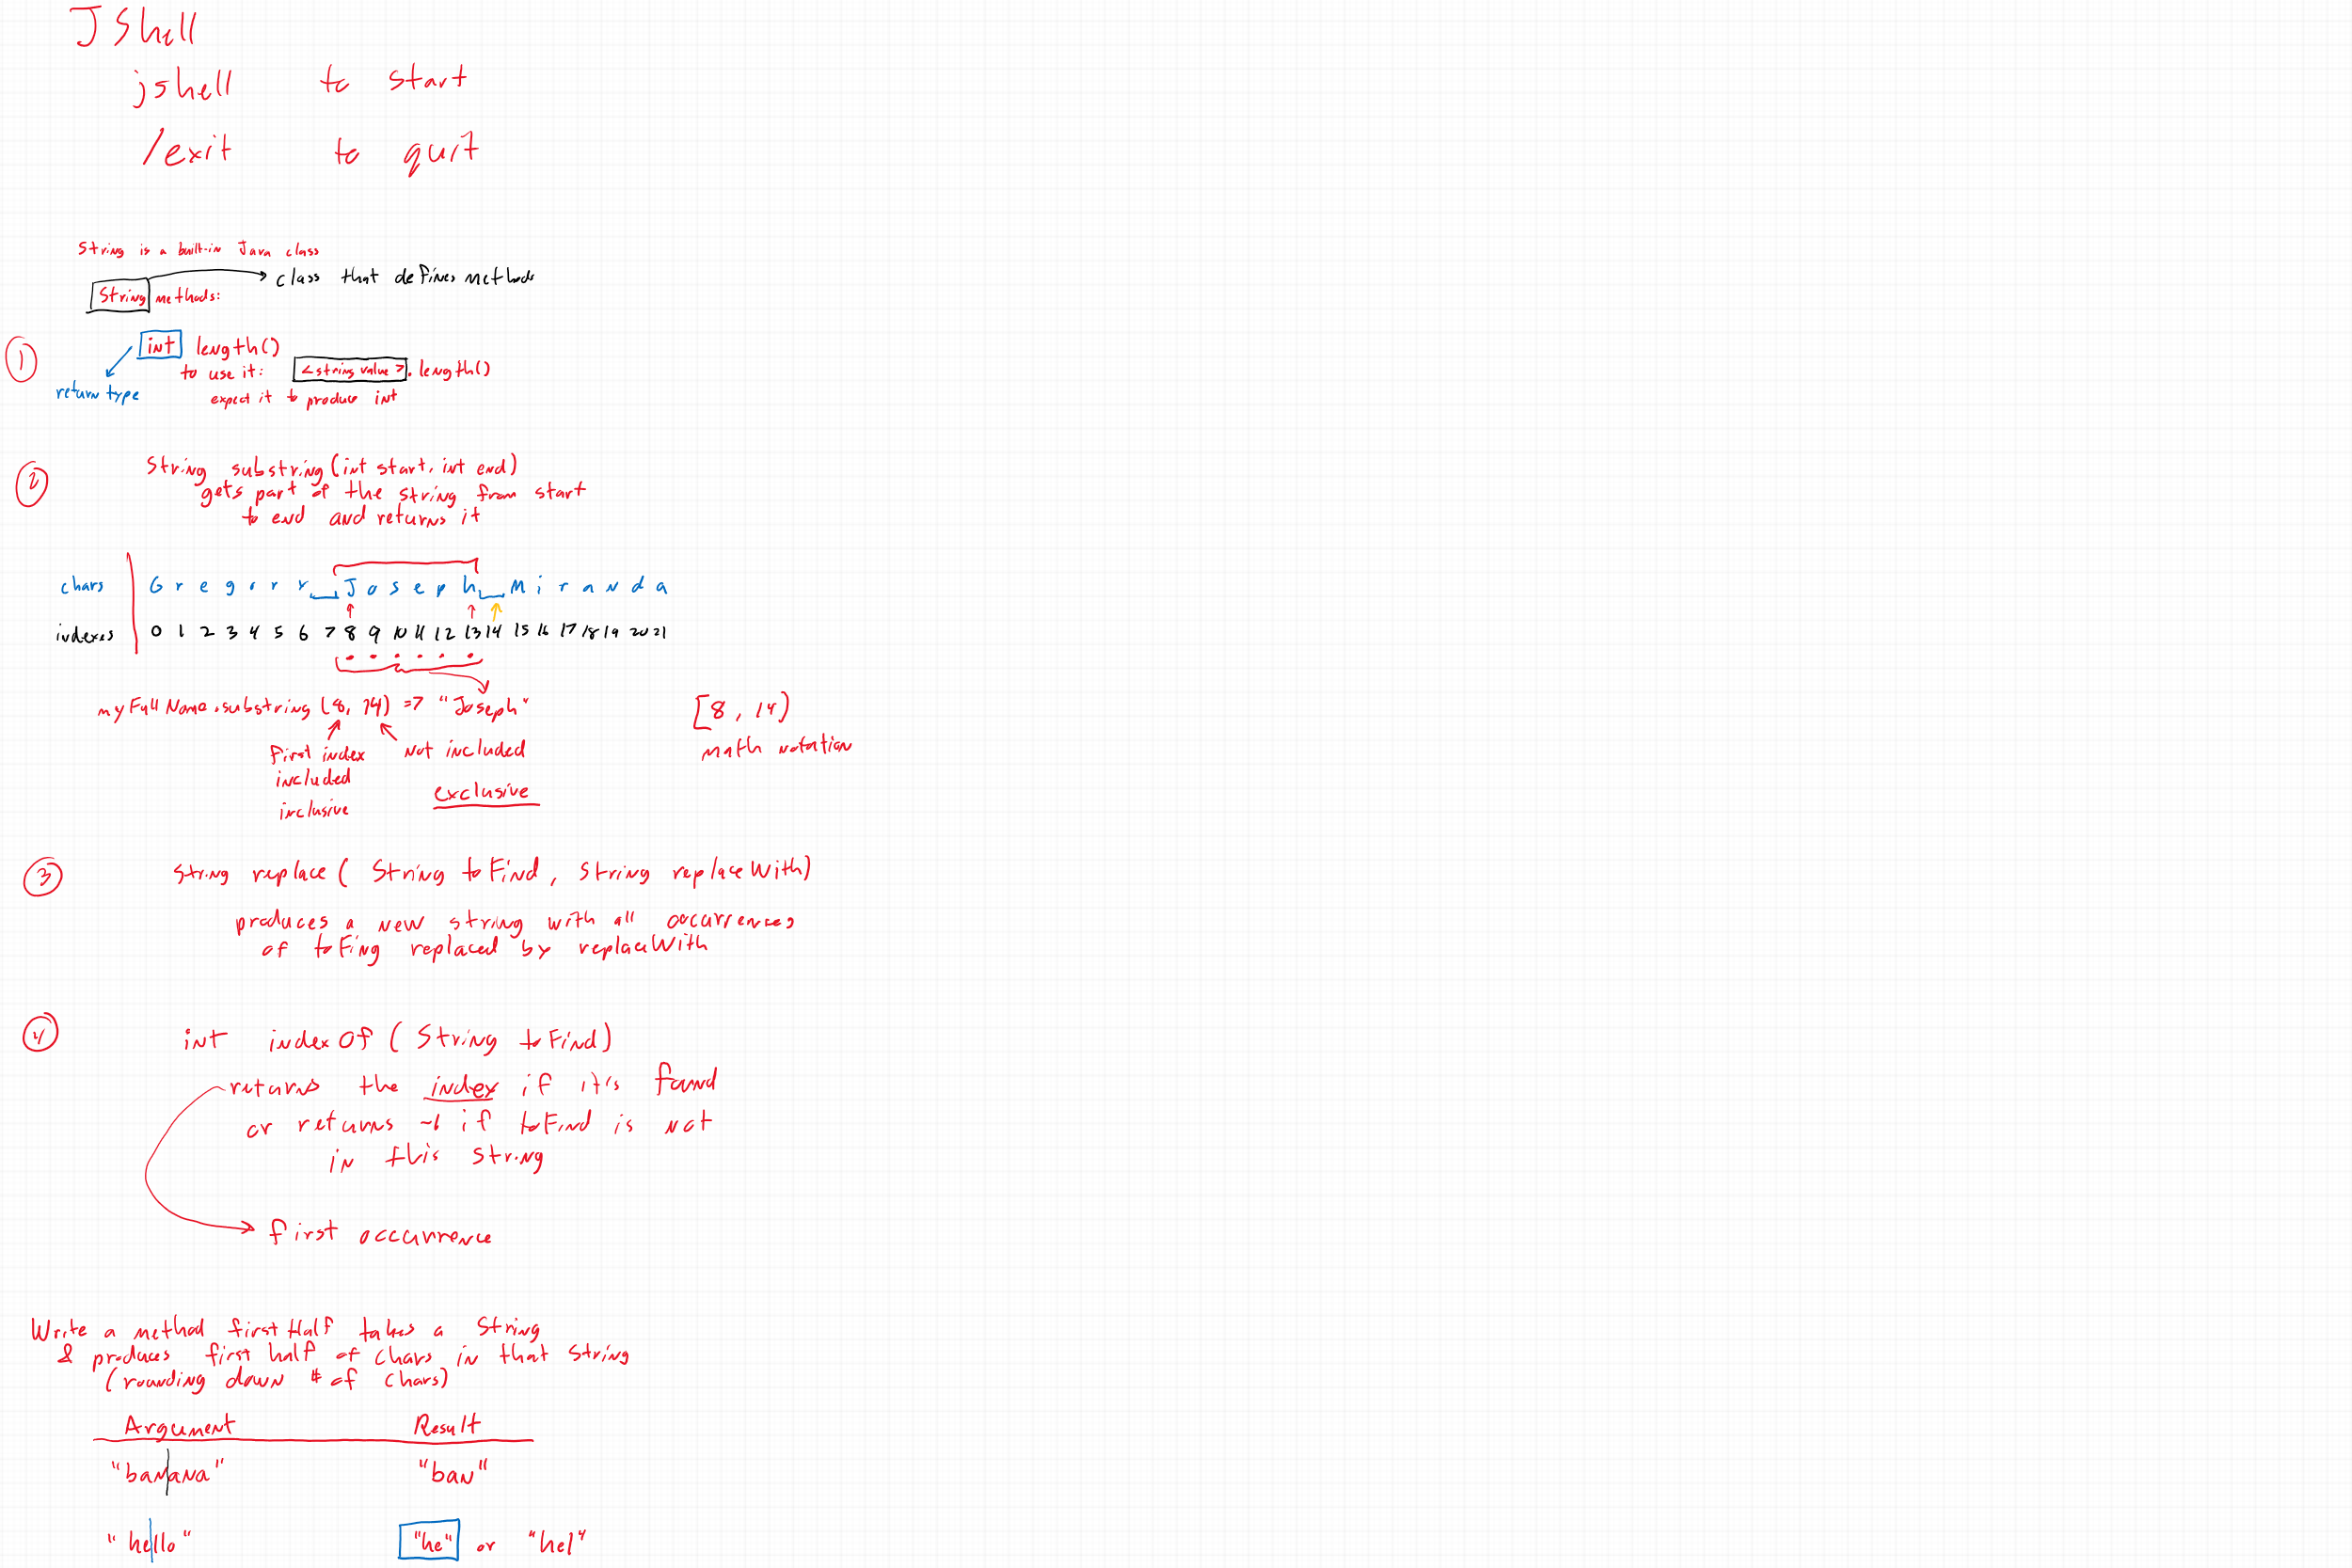 JShell
jshell to start
/exit to quit
String is a built-in Java class
class that defines methods
String methods:
1
int length()
to use it: <string value>.length()
return type
expect it to produce int
2
String substring(int start, int end)
gets part of the string from start
to end and returns it
chars G r e g o r y J o s e p h M i r a n d a
indexes 0 1 2 3 4 5 6 7 8 9 10 11 12 13 14 15 16 17 18 19 20 21
myFullName.substring(8, 14) => "Joseph"
[8, 14)
first index not included
math notation
included
exclusive
inclusive
3
String replace( String toFind, String replaceWith)
produces a new string with all occurrences
of toFing replaced by replaceWith
4
int indexOf( String toFind)
returns the index if it's found
or returns -1 if toFind is not
in this string
first occurrence
Write a method firstHalf takes a String
& produces first half of chars in that string
(rounding down # of chars)
Argument Result
"banana" "ban"
"hello" "he" or "hel"